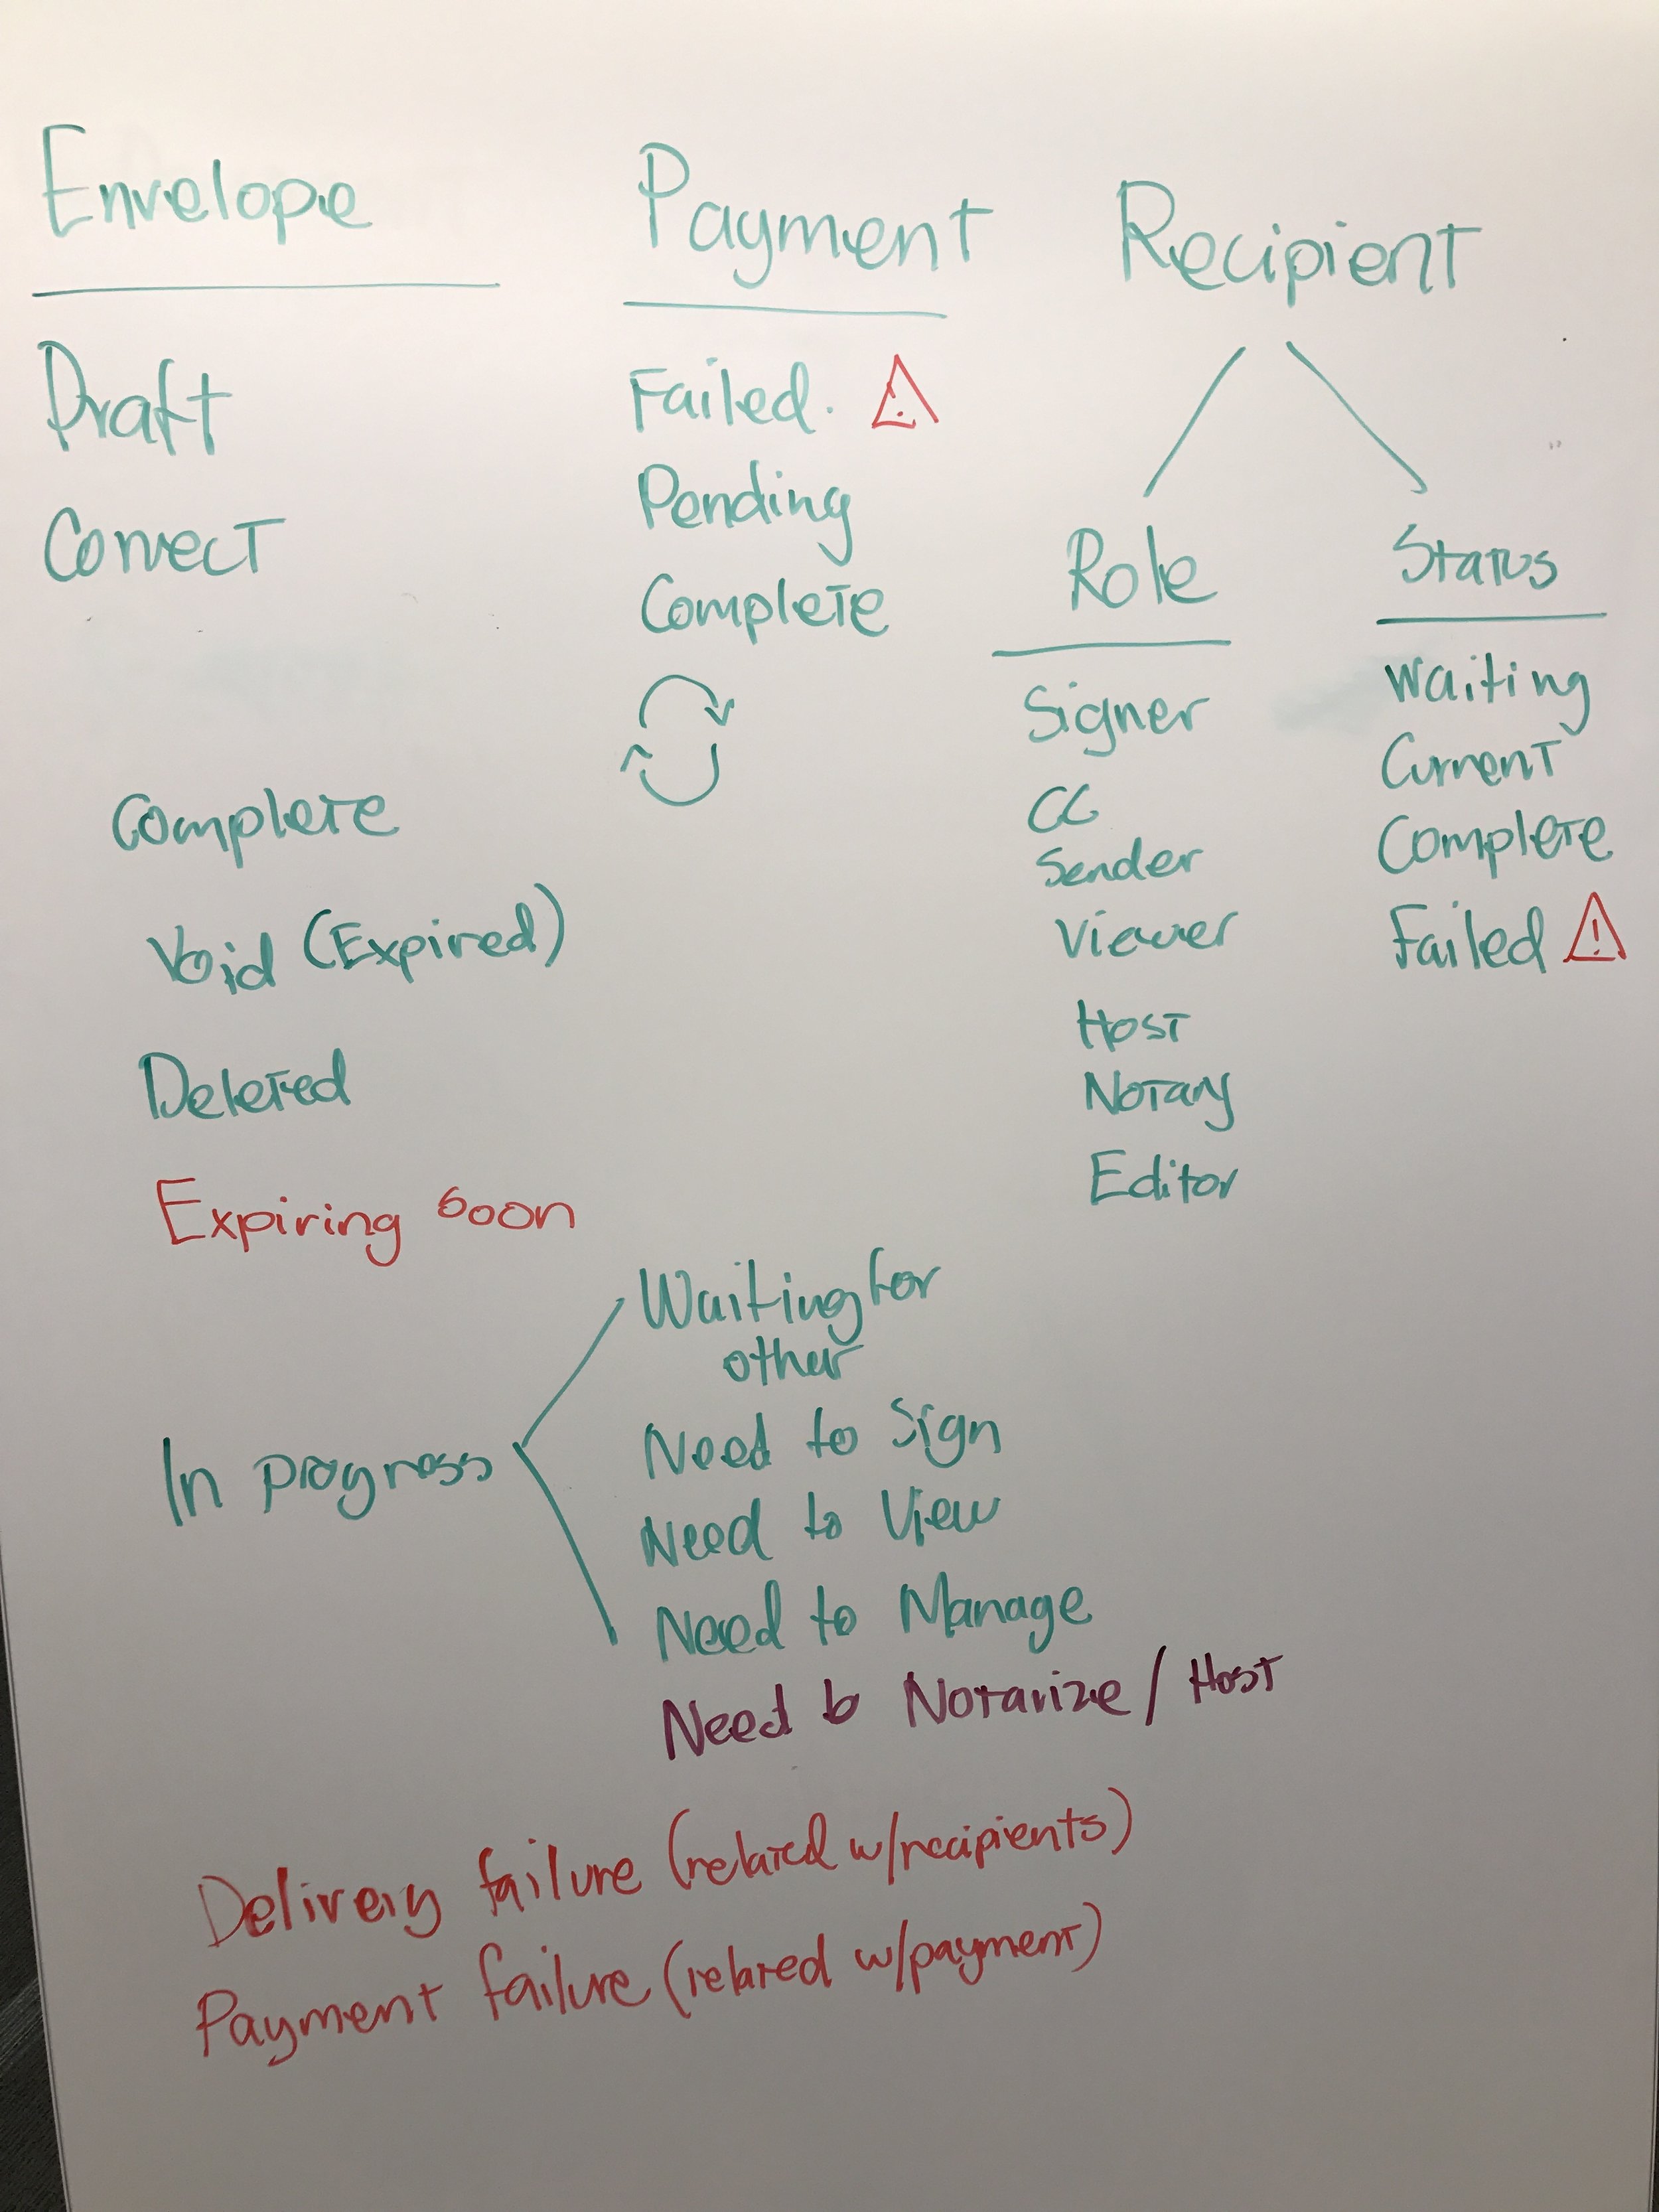 Envelope
Draft
Correct
Complete
Void (Expired)
Deleted
Expiring soon
In progress
Waiting for
other
Need to Sign
Need to View
Need to Manage
Need to Notarize / Host
Delivery failure (related w/recipients)
Payment failure (related w/payment)
Payment
Failed.
Pending
Complete
Recipient
Role
Signer
CC
Sender
Viewer
Host
Notary
Editor
Status
Waiting
Current
Complete
Failed